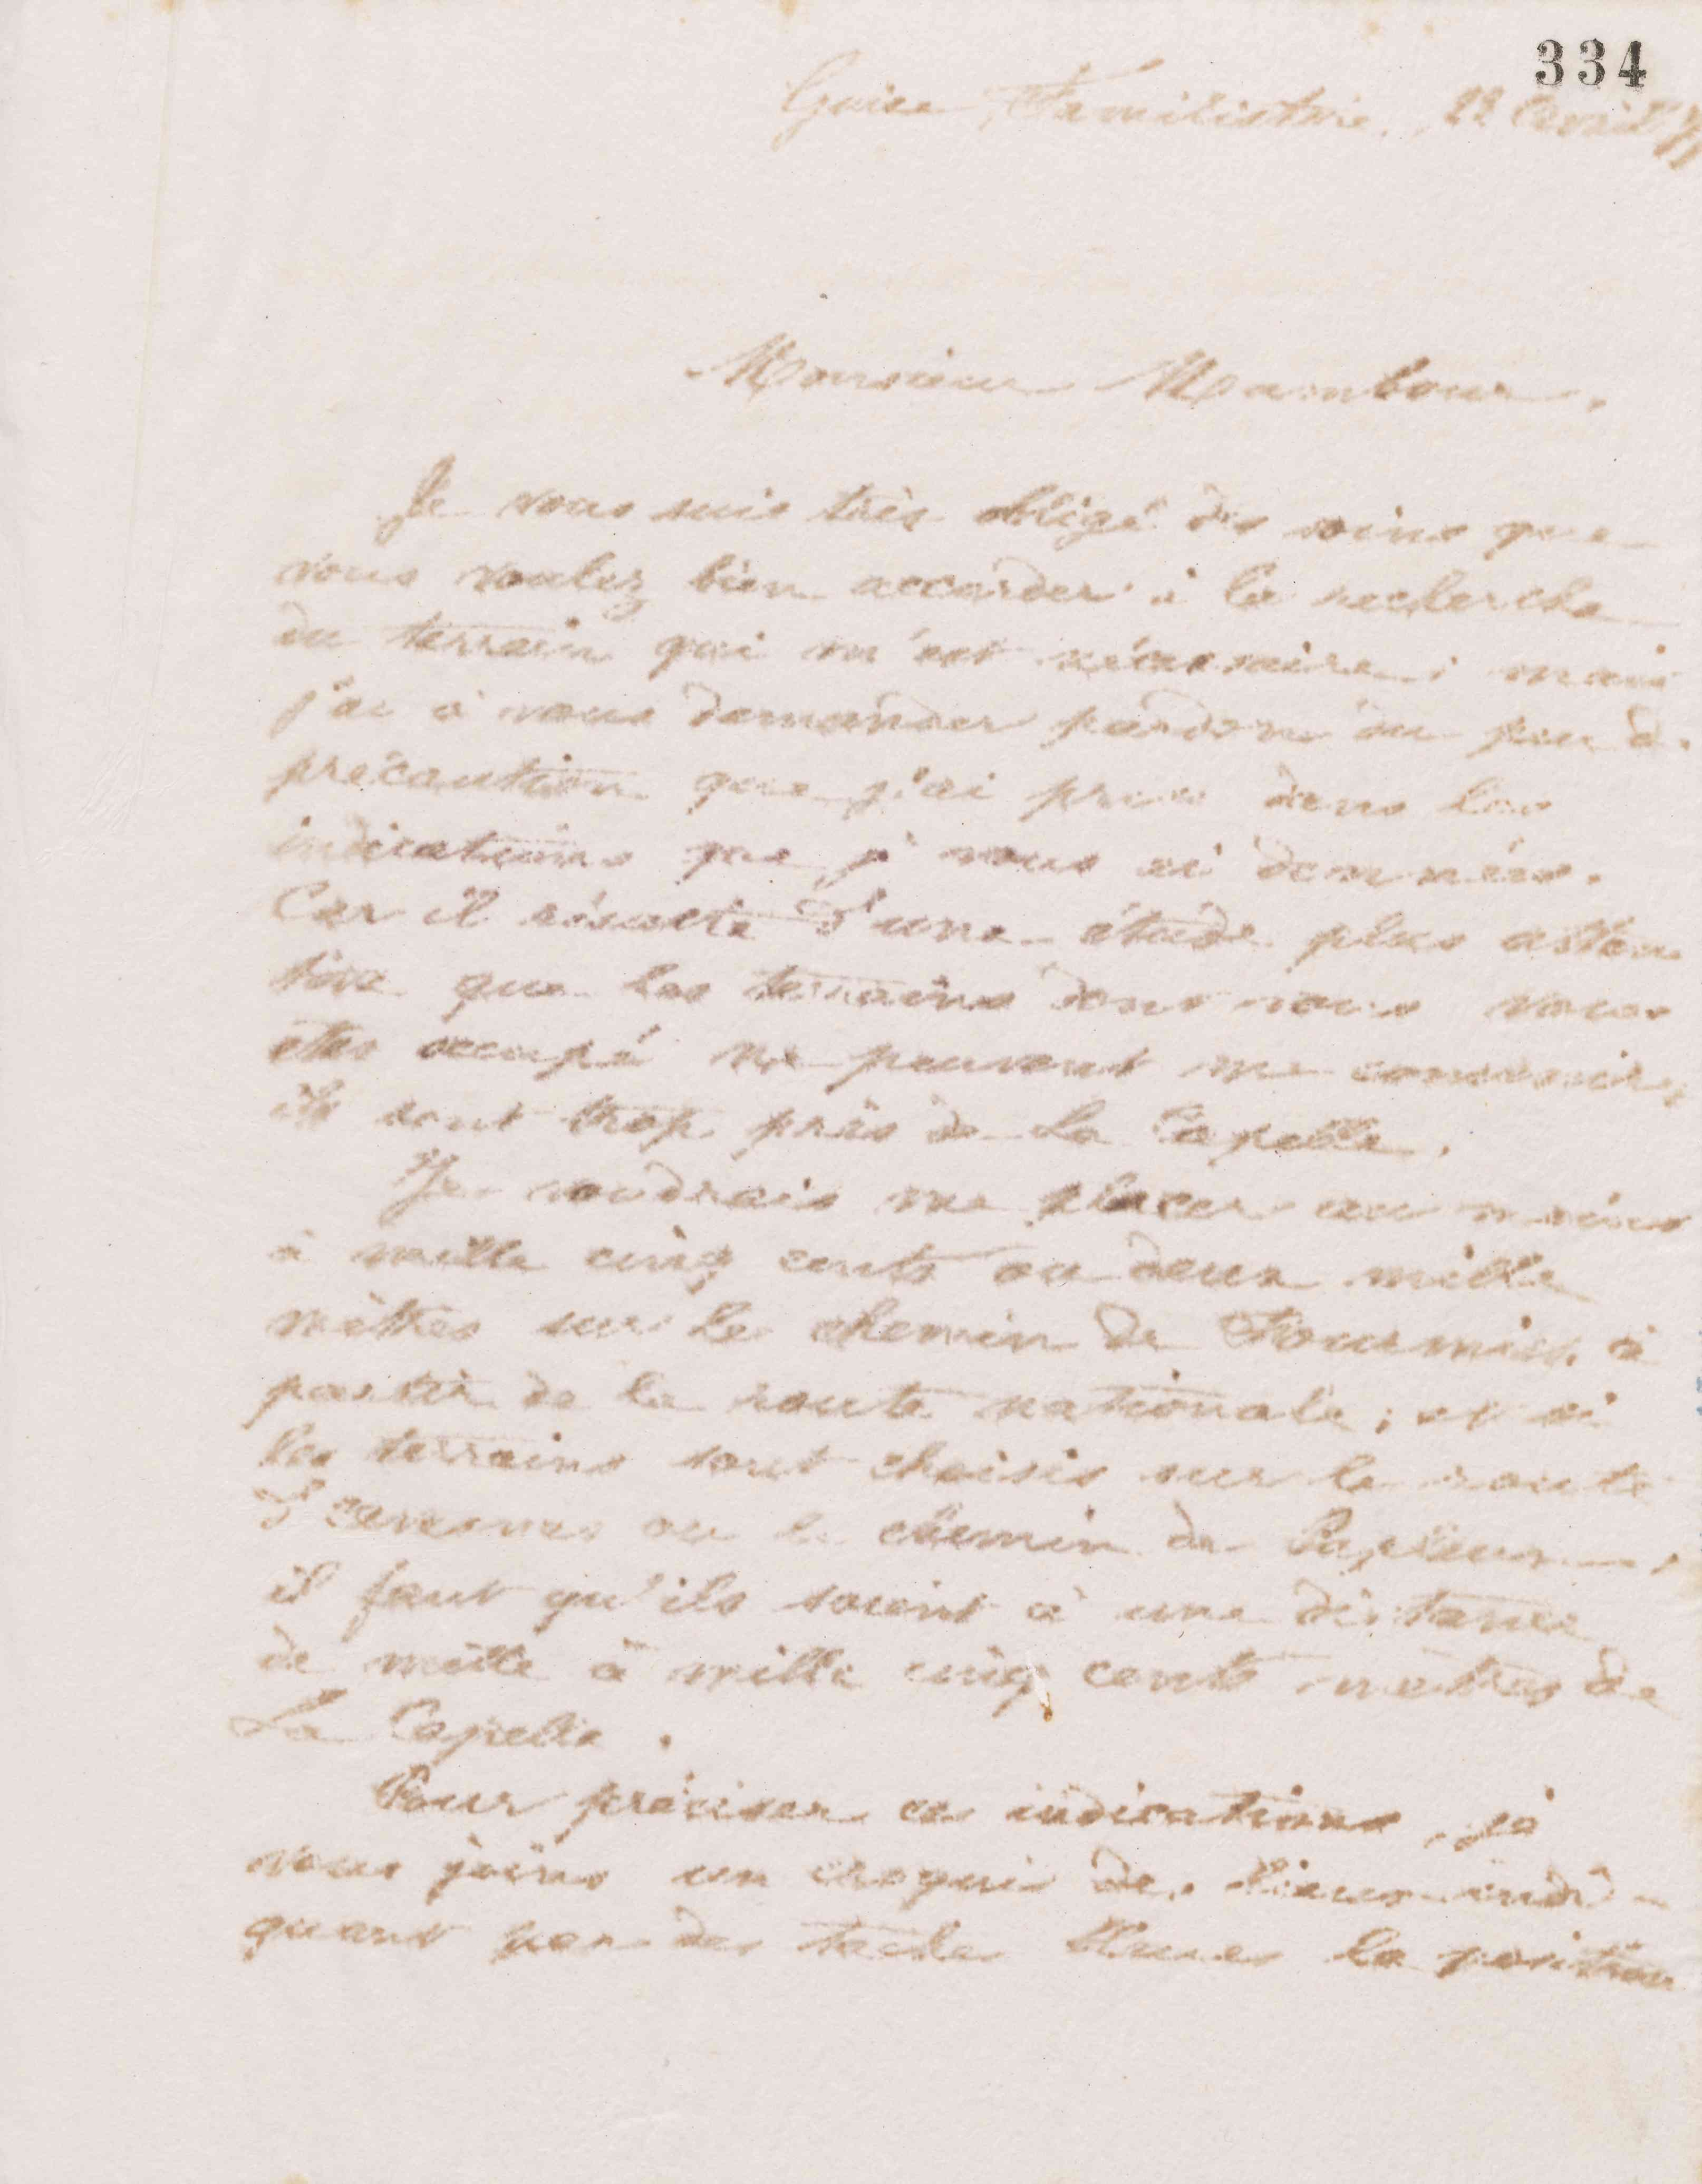 334
Guise Familistère, 22 Avril
Monsieur Mambour.
Je vous suis très obligé des soins que
vous voulez bien accorder à la recherche
du terrain qui m'est nécessaire; mais
j'ai à vous demander pardon du peu de
précaution que j'ai prise dans les
indications que je vous ai données.
Car il résulte d'une étude plus atten
tive que les terrains dont vous vous
êtes occupé ne peuvent me convenir,
ils sont trop près de La Capelle.
Je voudrais me placer au moins
à mille cinq cents ou deux mille
mètres sur le chemin de Fourmies à
partir de la route nationale; et si
les terrains sont choisis sur la route
ou le chemin de
il faut qu'ils soient à une distance
de mille à mille cinq cents mètres de
La Capelle.
Pour préciser ces indications, je
vous joins un croquis des lieux indi-
quant par des taches bleues la position